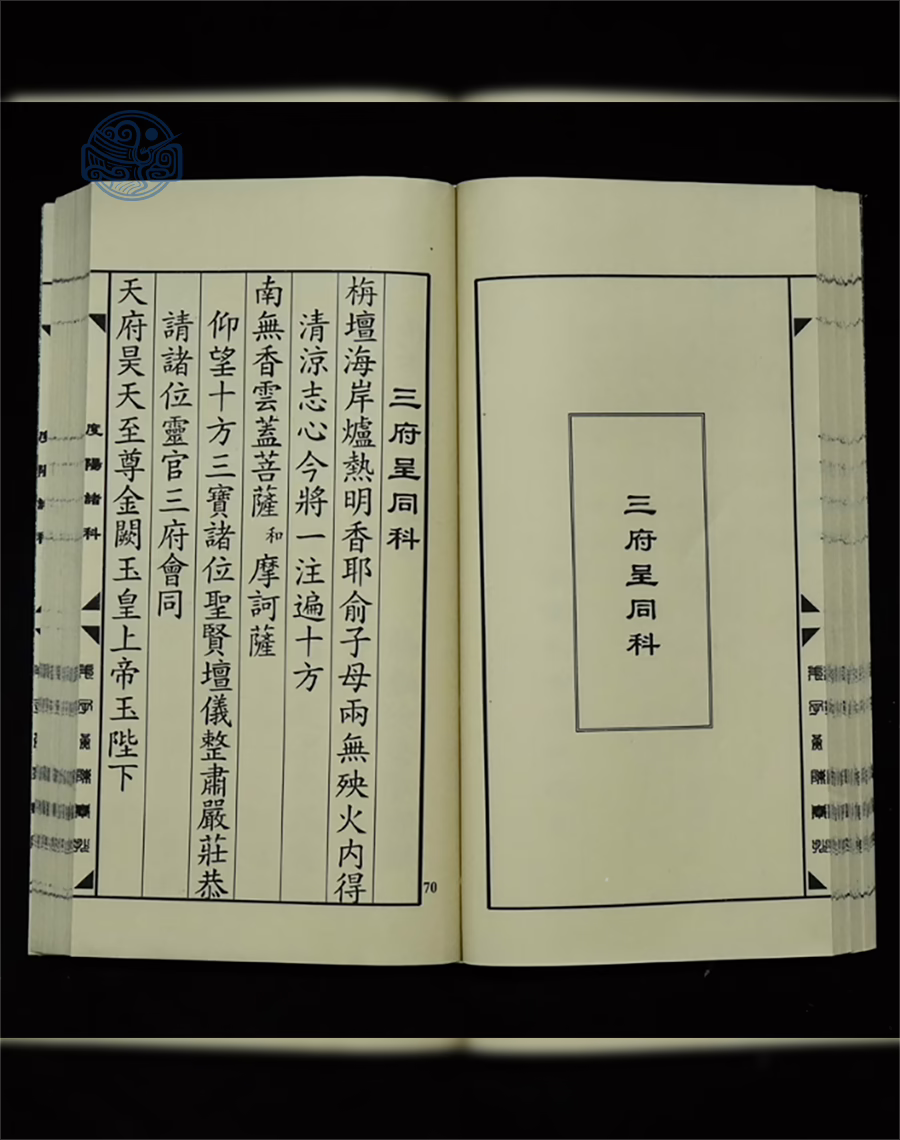 三府呈同科
三府呈同科
栴壇海岸爐熱明香耶俞子母兩無殃火内得
清涼志心今將一注遍十方
南無香雲蓋菩薩和摩訶薩
仰望十方三寶諸位聖賢壇儀整肅嚴莊恭
請諸位靈官三府會同
天府昊天至尊金闕玉皇上帝玉陛下
度陽諸科
70